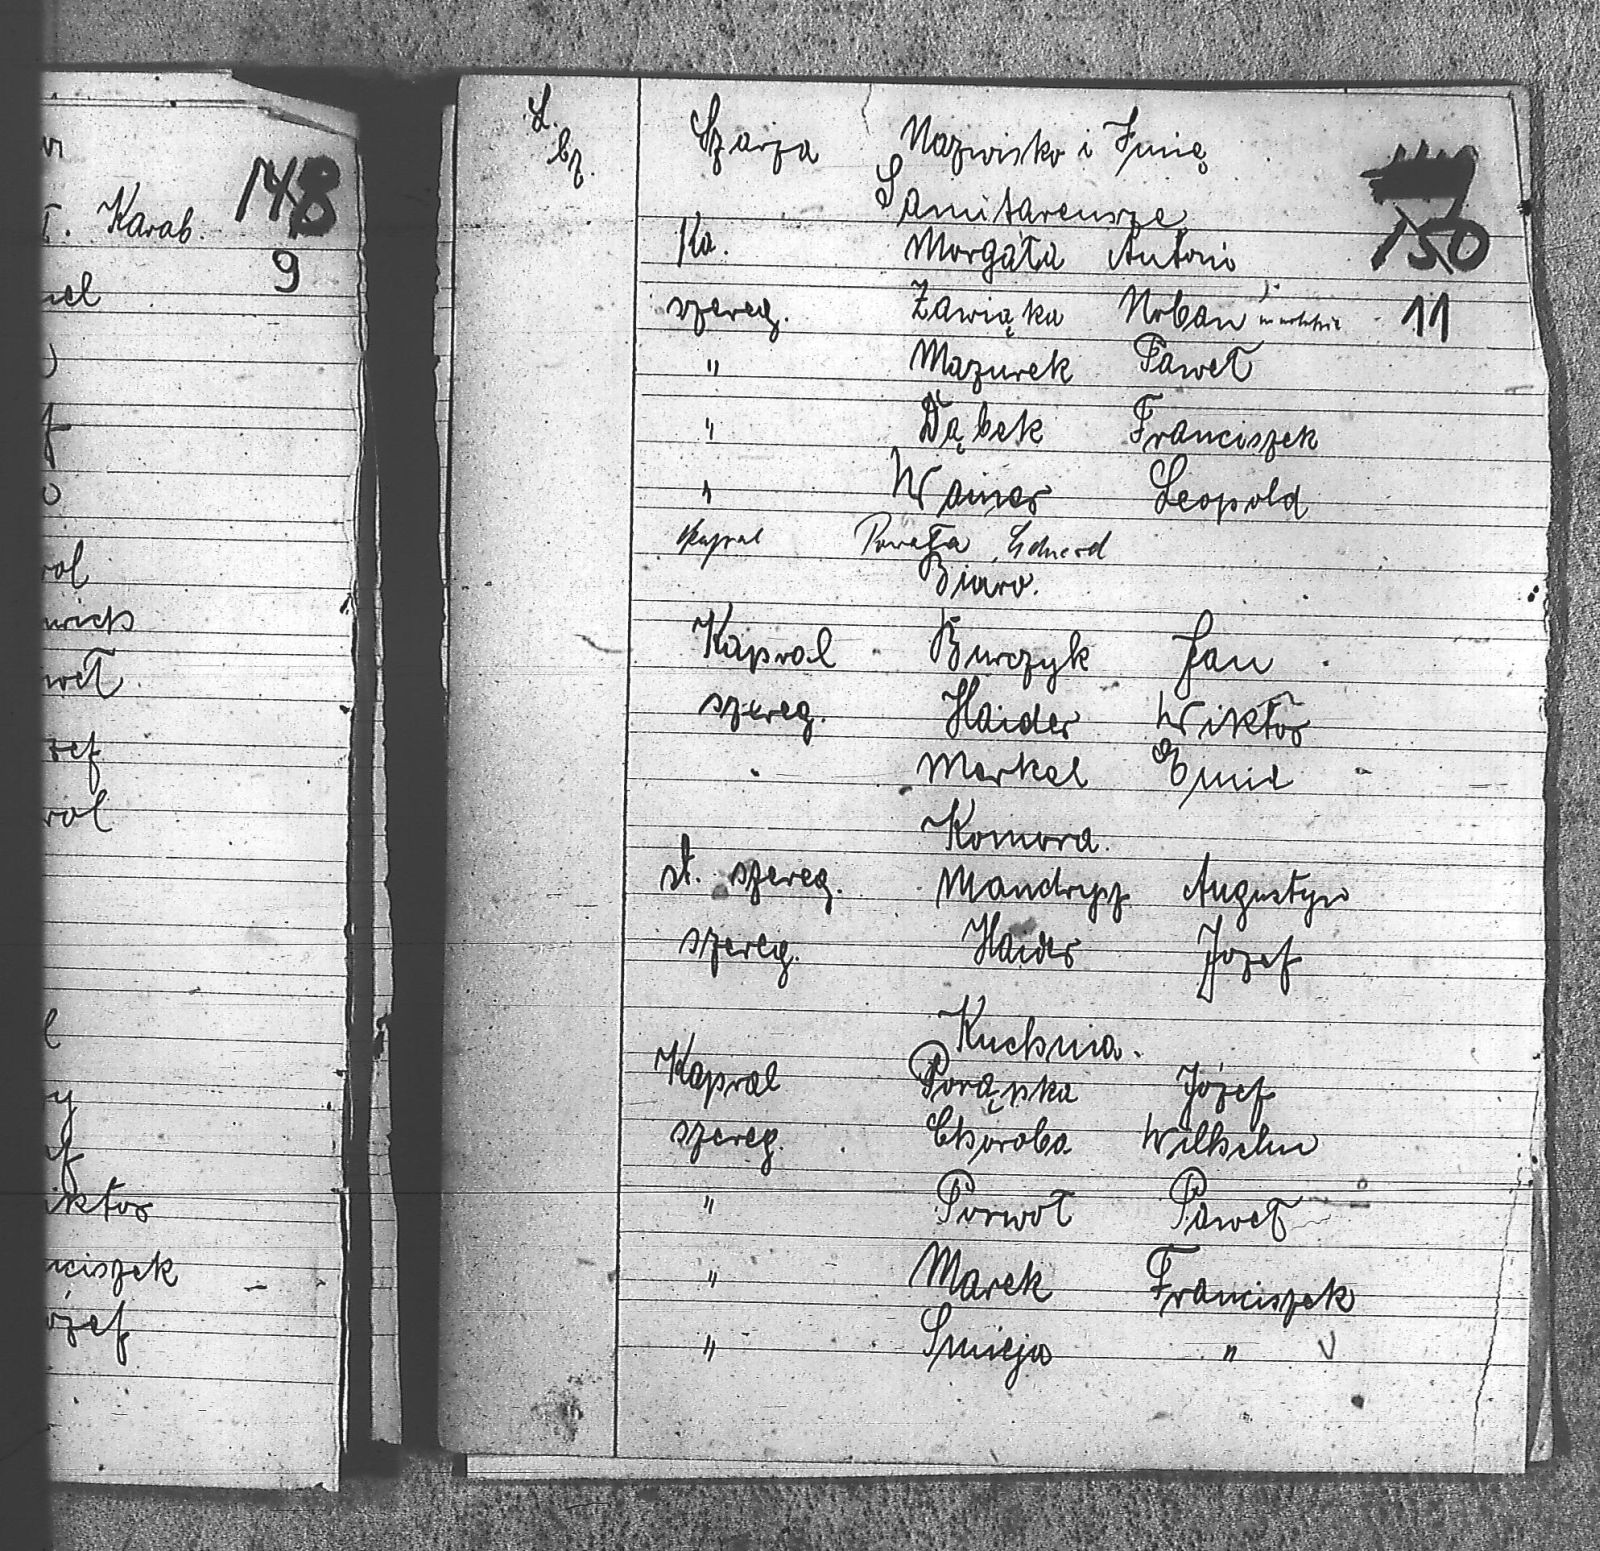 T. Karab. 148
9
nel
f
rol
wich
weł
zef
rol
y
iktor
nciszek
ózef
L. bż. Szarża Nazwisko i Imię
Sanitarensze 150
Ka. Morgała Antoni
szereg. Zawiąka Urban 11
" Mazurek Paweł
" Dąbek Franciszek
" Wainer Leopold
Kapral Powała Eduard
Biuro.
Kapral Burczyk Jan
szereg. Haider Wiktor
Merkel Emil
Komora.
st. szereg. Mandrysz Augustyn
szereg. Haider Józef
Kuchnia.
Kapral Porąpka Józef
szereg. Choroba Wilhelm
" Porwoł Paweł
" Marek Franciszek
" Śmieja "